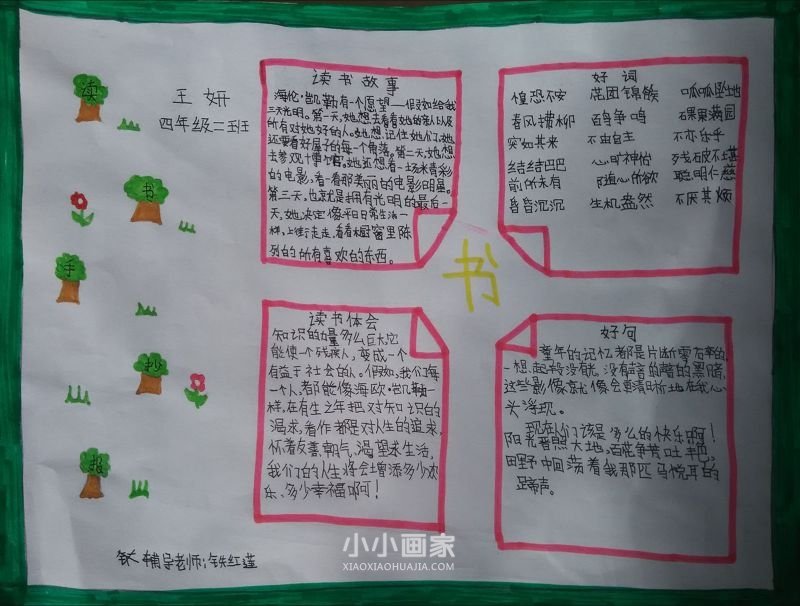 读
书
手
抄
报
王妍
四年级二班
读书故事
海伦·凯勒有个愿望——假如给我
三天光明。第一天,她想去看看她的亲人以及
所有对她好的人。她想记住她们,她
还要看好屋子的每个角落。第二天,她想
去参观博物馆,她还想看一场精彩
的电影,看一看那美丽的电影明星。
第三天,也就是拥有光明的最后一
天,她决定像平日日常生活一
样,上街走走,看看橱窗里陈
列的所有喜欢的东西。
好词
惶恐不安 花团锦簇 呱呱坠地
春风拂柳 百鸟争鸣 硕果满园
突如其来 不由自主 不亦乐乎
结结巴巴 心旷神怡 残破不堪
前所未有 随心所欲 聪明仁慈
昏昏沉沉 生机盎然 不厌其烦
书
读书体会
知识的力量多么巨大,它
能使一个残疾人,变成一个
有益于社会的人。假如,我们每
一个人,都能像海欧·凯勒一
样,在有生之年把对知识的
渴求,看作都是对人生的追求,
怀着友善,朝气,渴望求生活,
我们的人生将会增添多少欢
乐、多少幸福啊!
好句
童年的记忆都是片断零石率的,
一想起没有就没有
这些影像就像会更清晰地在我心
头浮现。
现在人们该是多么的快乐啊!
阳光普照大地,百花争芳吐艳,
田野中回荡着我那匹马悦耳的
蹄声。
辅导老师:铁红莲
小小画家
XIAOXIAOHUAJIA.COM